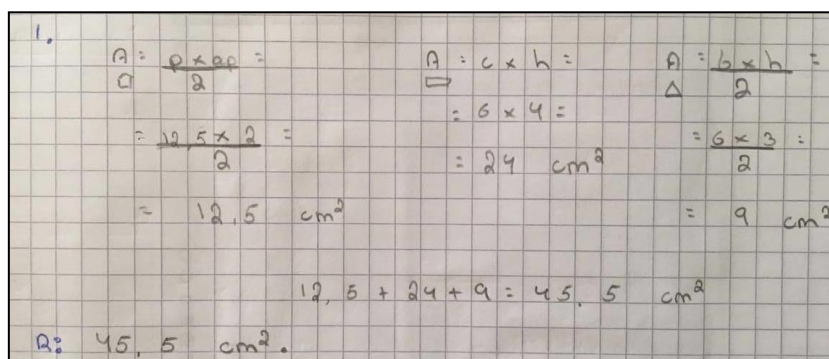 1.
A⬠ = p x ap / 2 =
= 12,5 x 2 / 2 =
= 12,5 cm²
A▭ = c x h =
= 6 x 4 =
= 24 cm²
A△ = b x h / 2 =
= 6 x 3 / 2 =
= 9 cm²
12,5 + 24 + 9 = 45,5 cm²
R: 45,5 cm².